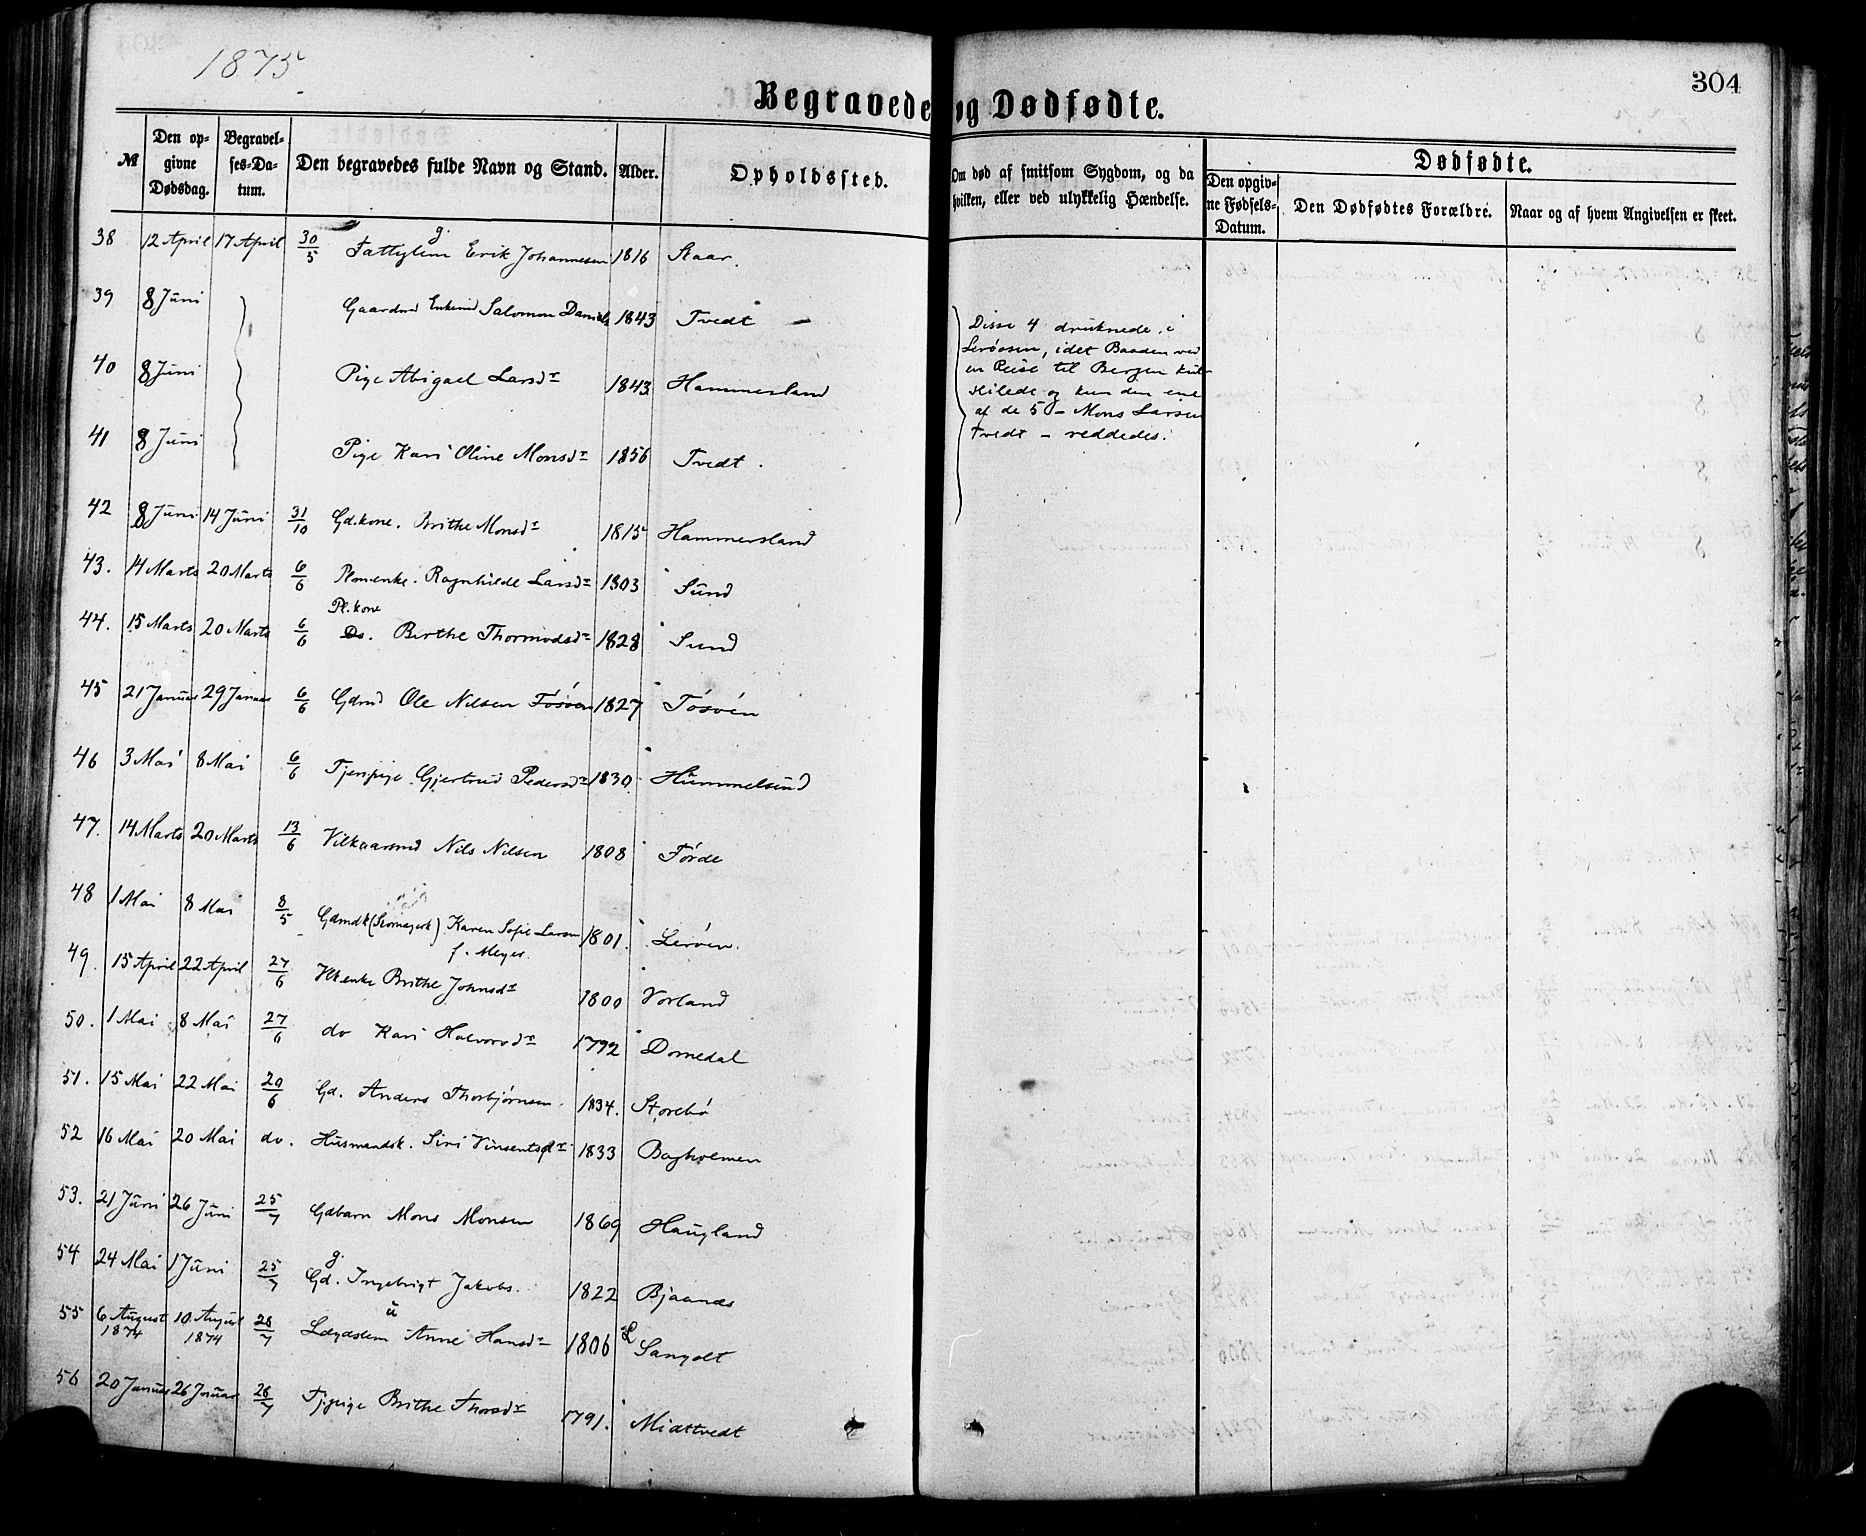 1875
304
Begravede og Dødfødte.
№ Den opgivne Dødsdag. Begravelses-Datum. Den begravedes fulde Navn og Stand. Alder. Opholdssted. Om død af smitsom Sygdom, og da hvilken, eller ved ulykkelig Hændelse. Dødfødte. Den opgivne Fødsels-Datum. Den Dødfødtes Forældre. Naar og af hvem Angivelsen er skeet.
38 12 April 17 April 30/5 g. Fattiglem Erik Johannesen 1816 Skaar.
39 8 Juni Gaardmd Enkemd Salomon Daniels 1843 Tvedt
40 8 Juni Pige Abigael Larsdr 1843 Hammersland
41 8 Juni Pige Kari Oline Monsdr 1856 Tvedt.
Disse 4 druknede i
Lerøosen, idet Baaden ved
en Reise til Bergen kul-
seilede og kun den ene
af de 5 – Mons Larsen
Tvedt – reddedes.
42 8 Juni 14 Juni 31/10 Gd.kone. Brithe Monsdr 1815 Hammersland
43. 14 Marts 20 Marts 6/6 Plmenke. Ragnhilde Larsdr 1803 Sund
Pl. kone
44. 15 Marts 20 Marts 6/6 Ds. Berthe Thormodsdr 1828 Sund
45 21 Januar 29 Januar 6/6 Gdmd Ole Nilsen Tøsøen 1827 Tøsøen
46 3 Mai 8 Mai 6/6 Tjenpige Gjertrud Pedersdr 1830 Hummelsund
47. 14 Marts 20 Marts 13/6 Vilkaarsmd Nils Nilsen 1808 Førde
48 1 Mai 8 Mai 8/5 Gdmdk Karen Sofie Larsen 1801. Lerøen.
f. Meyer
49. 15 April 22 April 27/6 Vlkenke Brithe Johnsdr 1800 Vorland
50. 1 Mai 8 Mai 27/6 do Kari Halvorsdr 1792 Dommedal
51. 15 Mai 22 Mai 29/6 Gd. Anders Thorbjørnsen 1834. Storebø
52 16 Mai 20 Mai do. Husmandsk. Siri Vinsentsdr 1833 Bagholmen
53. 21 Juni 26 Juni 25/7 Gdbarn Mons Monsen 1869 Haugland
54 24 Mai 1 Juni 25/7 g. Gd. Ingebrigt Jakobs. 1822 Bjaanes
55 6 August 1874 10 August 1874 28/7 u Lægdslem Anne Hansdr 1806 L Sangolt
56 20 Januar 26 Januar 28/7 Tjpige Brithe Thorsdr 1791. Midttvedt